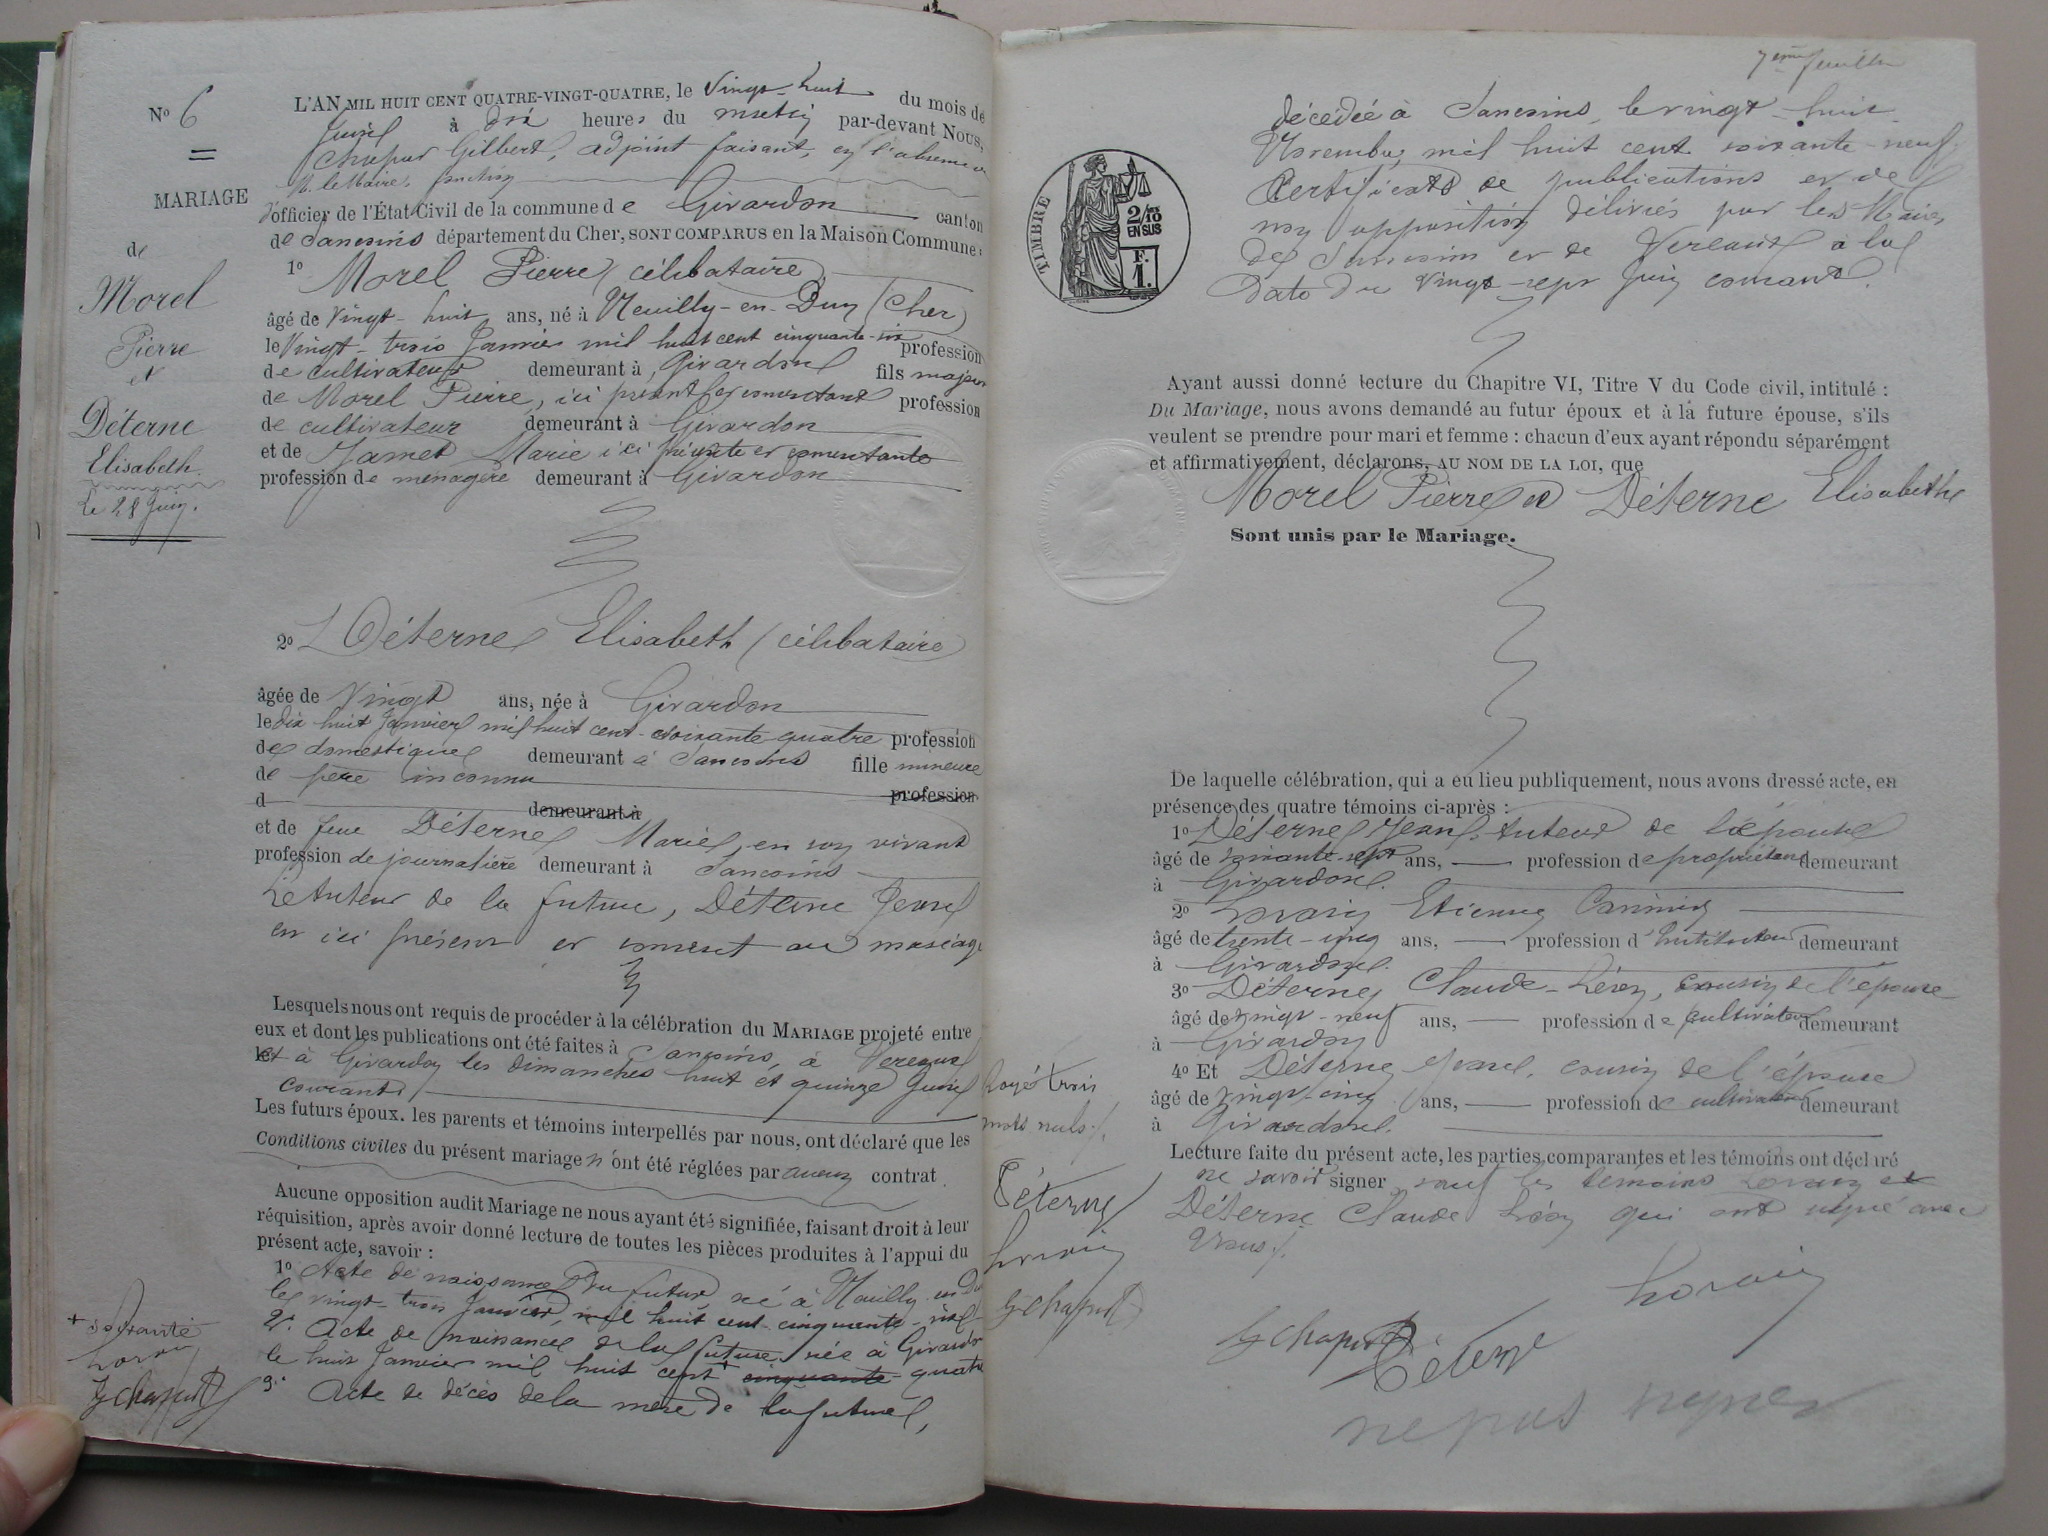 N° 6
=
MARIAGE
de
Morel
Pierre
et
Déterne
Elisabeth.
Le 28 Juin.
L'AN MIL HUIT CENT QUATRE-VINGT-QUATRE, le Vingt-huit du mois de
Juin à dix heures du matin par-devant Nous,
Chapur Gilbert, adjoint faisant, en l'absence de
M. le Maire, fonction
d'officier de l'État Civil de la commune de Givardon canton
de Sancoins département du Cher, SONT COMPARUS en la Maison Commune :
1° Morel Pierre, célibataire,
âgé de Vingt-huit ans, né à Neuilly-en-Dun (Cher)
le Vingt-trois Janvier mil huit cent cinquante-six profession
de cultivateur demeurant à Givardon fils majeur
de Morel Pierre, ici présent et consentant profession
de cultivateur demeurant à Givardon
et de Jamet Marie ici présente et consentante
profession de ménagère demeurant à Givardon
2° Déterne Elisabeth (célibataire)
âgée de Vingt ans, née à Givardon
le dix huit Janvier mil huit cent soixante quatre profession
de domestique demeurant à Sancoins fille mineure
de père inconnu profession
d demeurant à
et de feue Déterne Marie, en son vivant
profession de journalière demeurant à Sancoins
Le tuteur de la future, Déterne Jean
est ici présent et consent au mariage
Lesquels nous ont requis de procéder à la célébration du MARIAGE projeté entre
eux et dont les publications ont été faites à Sancoins, à Vereaux
et à Givardon les dimanches huit et quinze Juin
courant
Les futurs époux, les parents et témoins interpellés par nous, ont déclaré que les
Conditions civiles du présent mariage n'ont été réglées par aucun contrat.
Aucune opposition audit Mariage ne nous ayant été signifiée, faisant droit à leur
réquisition, après avoir donné lecture de toutes les pièces produites à l'appui du
présent acte, savoir :
1° Acte de naissance du futur né à Neuilly en Dun
le vingt-trois Janvier mil huit cent cinquante-six
2° Acte de naissance de la future née à Givardon
le huit Janvier mil huit cent + cinquante quatre
3° Acte de décès de la mère de la future,
+ soixante
Lorain
G Chapur
Rayé trois
mots nuls
Déterne
Lorain
G Chapur
7ème feuille
TIMBRE
2/10 EN SUS
F. 1.
décédée à Sancoins, le vingt-huit
Novembre mil huit cent soixante-neuf
Certificats de publications et de
non opposition délivrés par les Maires
de Sancoins et de Vereaux à la
date du vingt-sept Juin courant.
Ayant aussi donné lecture du Chapitre VI, Titre V du Code civil, intitulé :
Du Mariage, nous avons demandé au futur époux et à la future épouse, s'ils
veulent se prendre pour mari et femme : chacun d'eux ayant répondu séparément
et affirmativement, déclarons, AU NOM DE LA LOI, que
Morel Pierre et Déterne Elisabeth
Sont unis par le Mariage.
De laquelle célébration, qui a eu lieu publiquement, nous avons dressé acte, en
présence des quatre témoins ci-après :
1° Déterne Jean, tuteur de l'épouse
âgé de soixante-sept ans, profession de propriétaire demeurant
à Givardon.
2° Lorain Etienne
âgé de trente-cinq ans, profession d'Instituteur demeurant
à Givardon.
3° Déterne Claude-Léon, cousin de l'épouse
âgé de vingt-neuf ans, profession de cultivateur demeurant
à Givardon
4° Et Déterne Jean, cousin de l'épouse
âgé de vingt-cinq ans, profession de cultivateur demeurant
à Givardon.
Lecture faite du présent acte, les parties comparantes et les témoins ont déclaré
ne savoir signer sauf les témoins Lorain et
Déterne Claude Léon qui ont signé avec
Nous.
Lorain
G Chapur
Déterne
ne pas signer